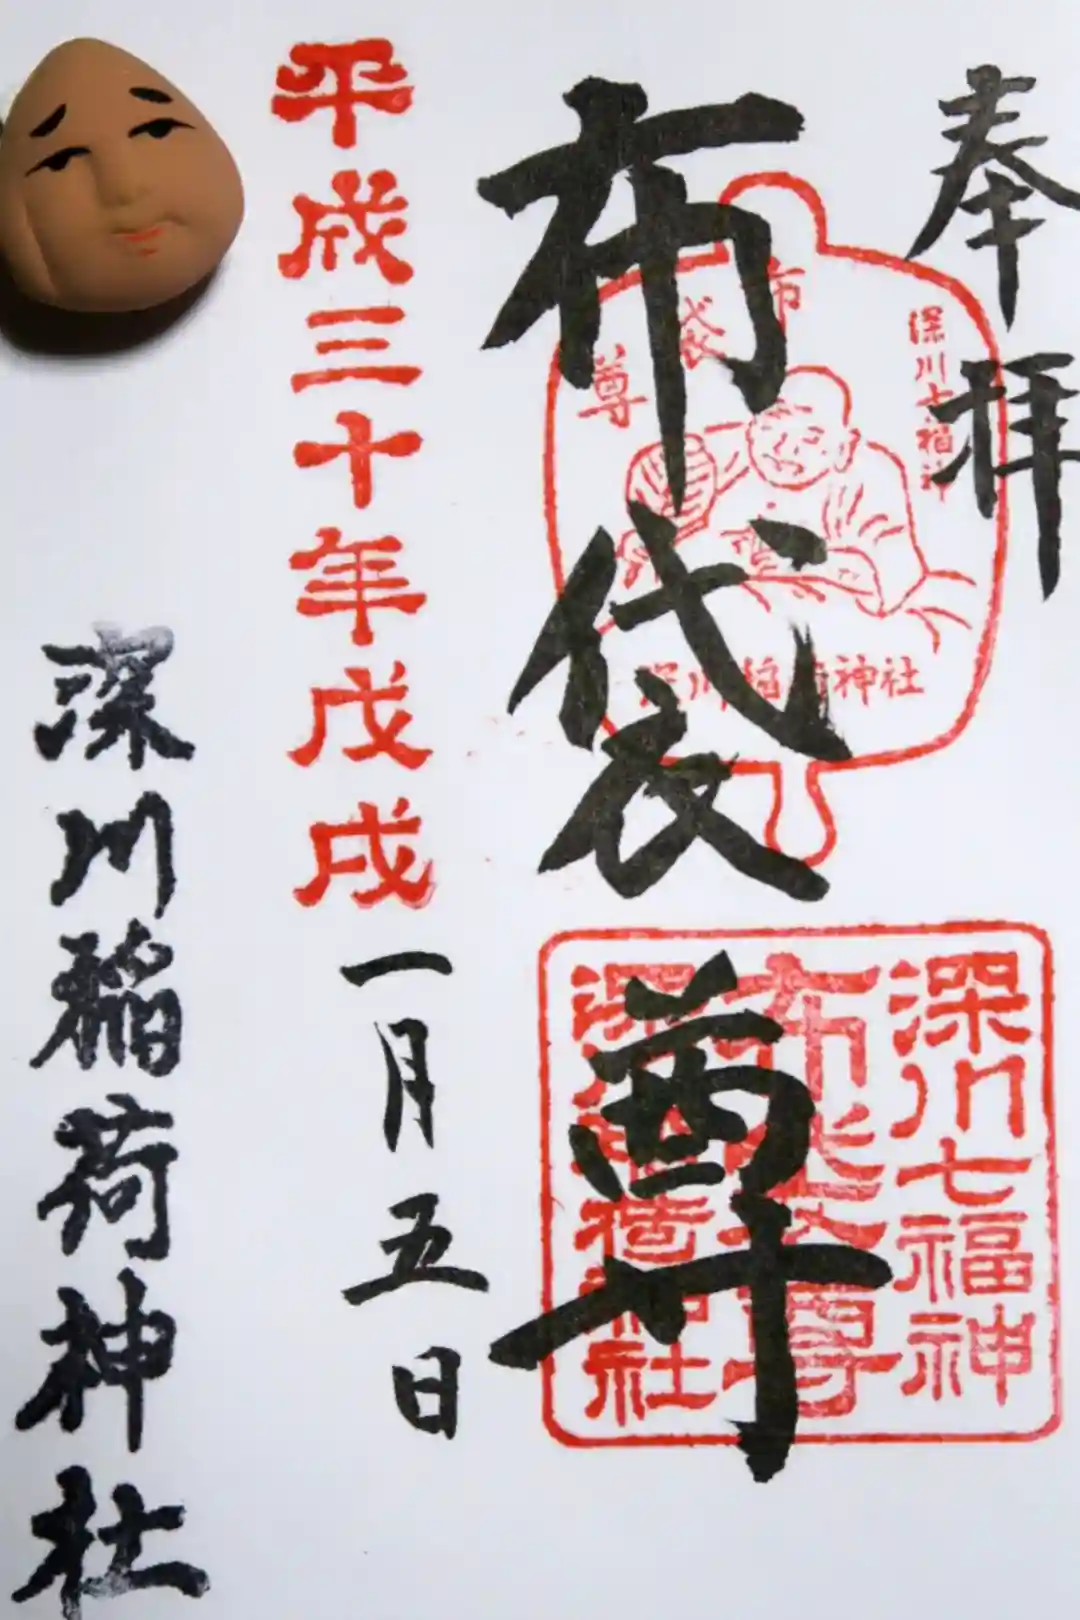 奉拝
布袋尊
深川七福神
布袋尊
深川稲荷神社
深川七福神
布袋尊
深川稲荷神社
平成三十年戊戌
一月五日
深川稲荷神社